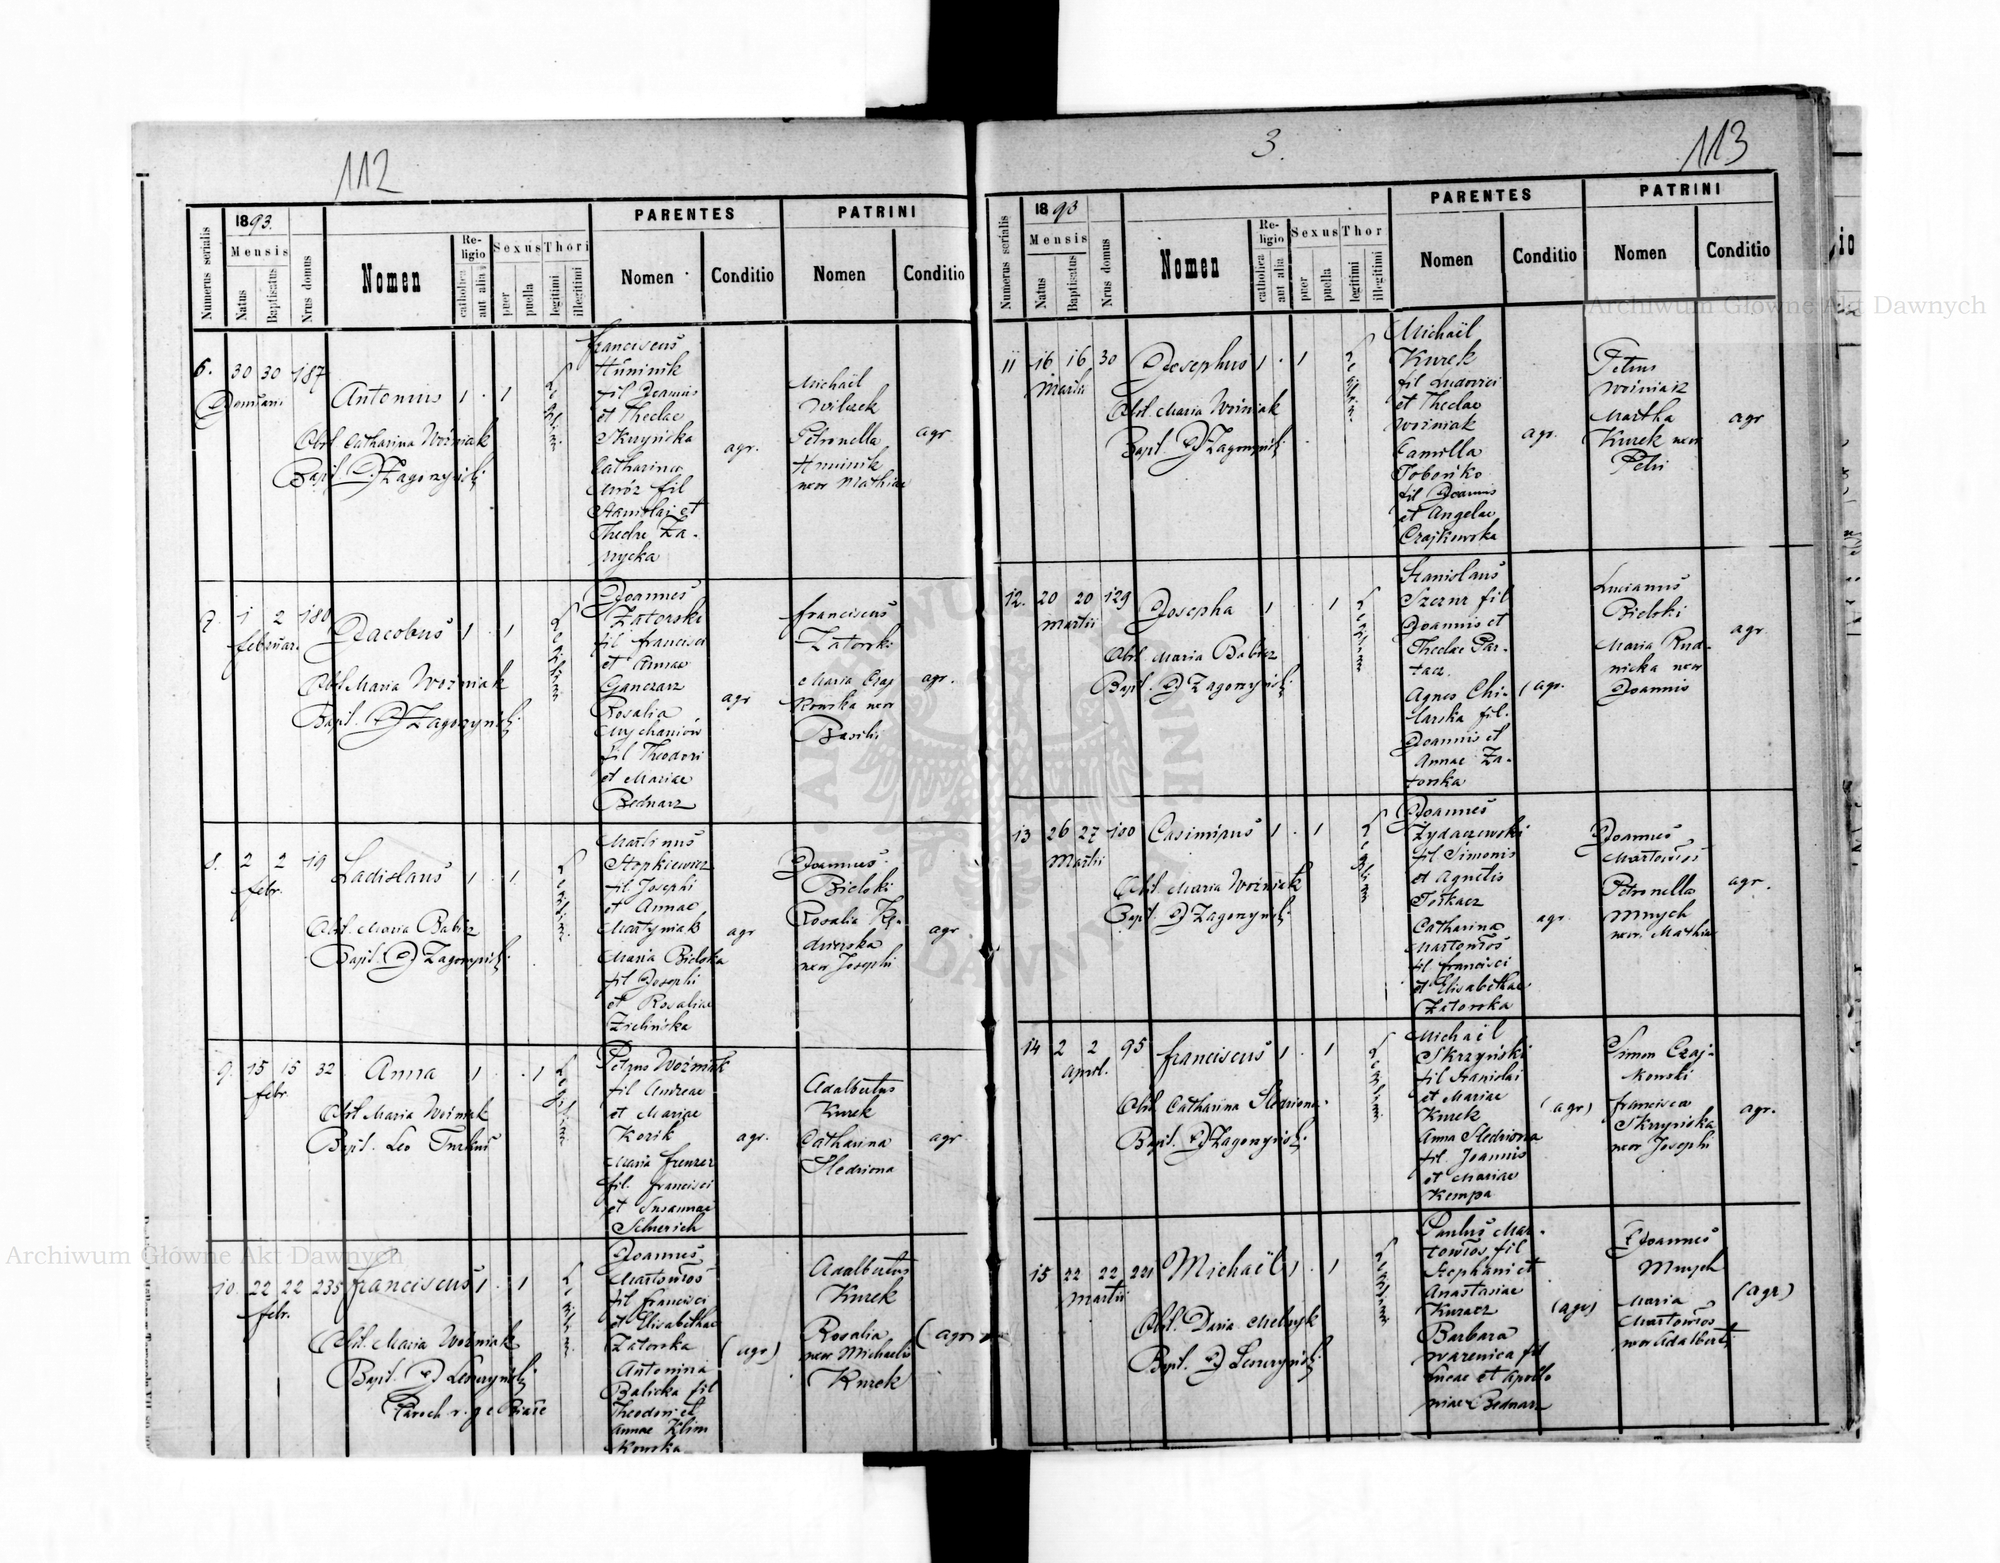 112
1893.
PARENTES
PATRINI
Numerus serialis
Mensis
Natus
Baptisatus
Nrus domus
Nomen
Religio
catholica
aut alia
Sexus
puer
puella
Thori
legitimi
illegitimi
Nomen
Conditio
Nomen
Conditio
6. 30 30 187
Januarii
Antonius 1 . 1
Obst Catharina Woźniak
Bapt.
Legitimi
Franciscus
Huminik
fil Joannis
et Theclae
Skrzyńska
Catharina
Mróz fil
Stanislai et
Theclae Za-
agr.
Michaël
Wilczek
Petronella
Huminik
uxor Mathiae
agr
7. 1 2 180
februar.
Jacobus 1 . 1
Obst Maria Woźniak
Bapt.
Legitimi
Joannes
Zatorski
fil francisci
et Annae
Ganczarz
Rosalia
fil Theodori
et Mariae
Bednarz
agr
franciscus
Zatorski
Maria Czaj
kowska uxor
Basilii
agr.
8. 2 2 19
febr.
Ladislaus 1 . 1
Obst. Maria Babicz
Bapt.
Legitimi
Martinus
Stopkiewicz
fil Josephi
et Annae
Martyniak
Maria Bielska
fil Josephi
et Rosaliae
Zielińska
agr
Joannes
Bielski
Rosalia Kę-
dzierska
uxor Josephi
agr
9. 15 15 32
febr.
Anna 1 . 1
Obst Maria Woźniak
Bapt. Leo Turkus
Legitimi
Petrus Woźniak
fil Andreae
et Mariae
Kozik
Maria frenzer
fil. francisci
et Susannae
agr.
Adalbertus
Kurek
Catharina
Sledziona
agr
10. 22 22 235
febr.
franciscus 1 . 1
Obst. Maria Woźniak
Bapt.
Paroch r. g c
Legitimi
Joannes
Martowłos
fil francisci
et Elisabethae
Zatorska
Antonina
Balicka fil
Theodori et
Annae Klim
kowska
(agr)
Adalbertus
Kurek
Rosalia
uxor Michaelis
Kurek
(agr)
3.
113
1893
PARENTES
PATRINI
Numerus serialis
Mensis
Natus
Baptisatus
Nrus domus
Nomen
Religio
catholica
aut alia
Sexus
puer
puella
Thor
legitimi
illegitimi
Nomen
Conditio
Nomen
Conditio
11 16 16 30
Martii
Josephus 1 . 1
Obst. Maria Woźniak
Bapt.
Legitimi
Michaël
Kurek
fil Ludovici
et Theclae
Woźniak
Camilla
fil Joannis
et Angelae
Czajkowska
agr.
Petrus
Woźniak
Martha
Kurek uxor
Petri
agr
12. 20 20 129
Martii
Josepha 1 1
Obst Maria Babicz
Bapt.
Legitimi
Stanislaus
Szczur fil
Joannis et
Theclae Par-
tacz
Agnes Chi-
larska fil.
Joannis et
Annae Za-
torska
(agr.
Lucianus
Bielski
Maria Rud-
nicka uxor
Joannis
agr.
13 26 27 180
Martii
Casimirus 1 . 1
Obst. Maria Woźniak
Bapt.
Legitimi
Joannes
Zydaczewski
fil Simonis
et Agnetis
Tokacz
Catharina
Martowłos
fil. francisci
et Elisabethae
Zatorska
agr.
Joannes
Martowłos
Petronella
Mnych
uxor. Mathiae
agr.
14 2 2 95
April.
franciscus 1 . 1
Obst Catharina Sledziona.
Bapt.
Legitimi
Michaël
Skrzyński
fil Stanislai
et Mariae
Kurek
Anna Sledziona
fil. Joannis
et Mariae
Kempa
(agr)
Simon Czaj-
kowski
francisca
Skrzyńska
uxor Josephi
agr.
15 22 22 221
Martii
Michaël 1 . 1
Obst. Daria Melnyk
Bapt.
Legitimi
Paulus Mar-
towłos fil
Stephani et
Anastasiae
Kuracz
Barbara
Warenica fil
Lucae et Apollo
niae Bednarz
(agr)
Joannes
Mnych
Maria
Martowłos
uxor Adalberti
(agr)
Archiwum Główne Akt Dawnych
Archiwum Główne Akt Dawnych